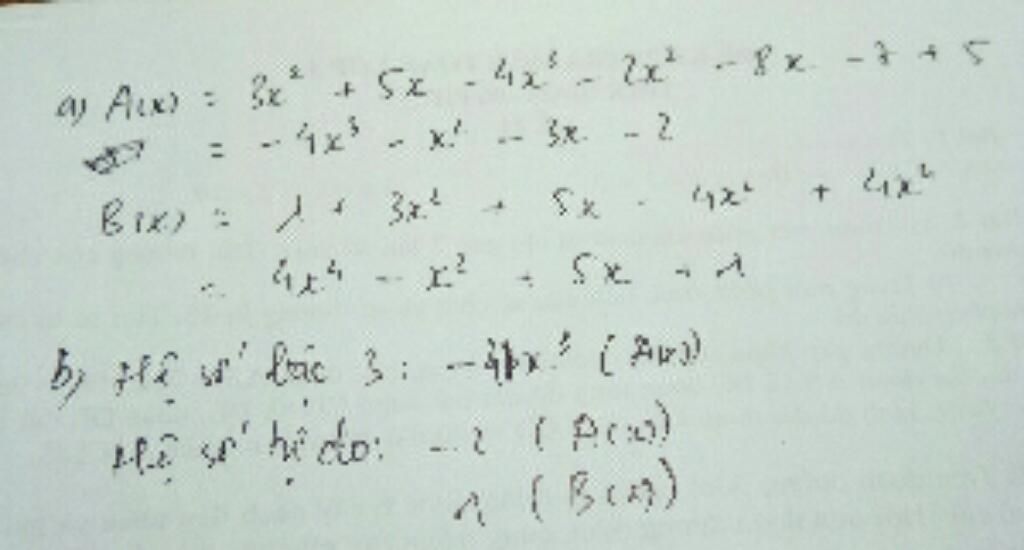 a) A(x) = 3x² + 5x - 4x³ - 2x² - 8x - 7 + 5
= - 4x³ - x² - 3x - 2
B(x) = 1 + 3x² + 5x - 4x² + 4x⁴
= 4x⁴ - x² + 5x + 1
b) Hệ số bậc 3: -4x³ (A(x))
Hệ số tự do: - 2 (A(x))
1 (B(x))